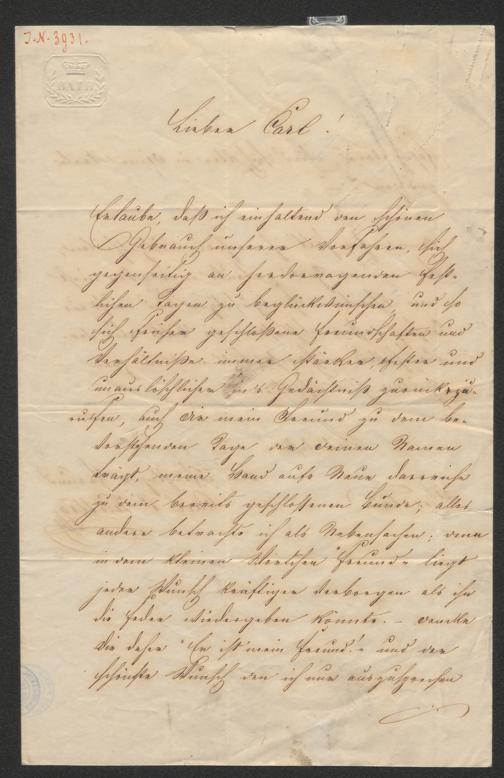 I.N. 3931.
BATH
Lieber Carl!
Erlaube, daß ich einhaltend den schönen
Gebrauch unserer Vorfahren, sich
gegenseitig an hervorragenden fest-
lichen Tagen zu beglückwünschen, und so
sich früher geschloßene Freundschaften und
Verhältniße immer stärker, fester und
unauslöschlicher in's Gedächtniß zurückzu-
rufen, auch Dir mein Freund zu dem be-
vorstehenden Tage der Deinen Namen
trägt, meine Hand aufs Neue darreiche
zu dem bereits geschlossenen Bunde; alles
andere betrachte ich als Nebensachen; denn
in dem kleinen Wörtchen "Freund" liegt
jeder Wunsch kräftiger verborgen als ihn
die Feder wiedergeben könnte. – Denke
Dir daher "Er ist mein Freund!" und der
schönste Wunsch den ich nur auszusprechen